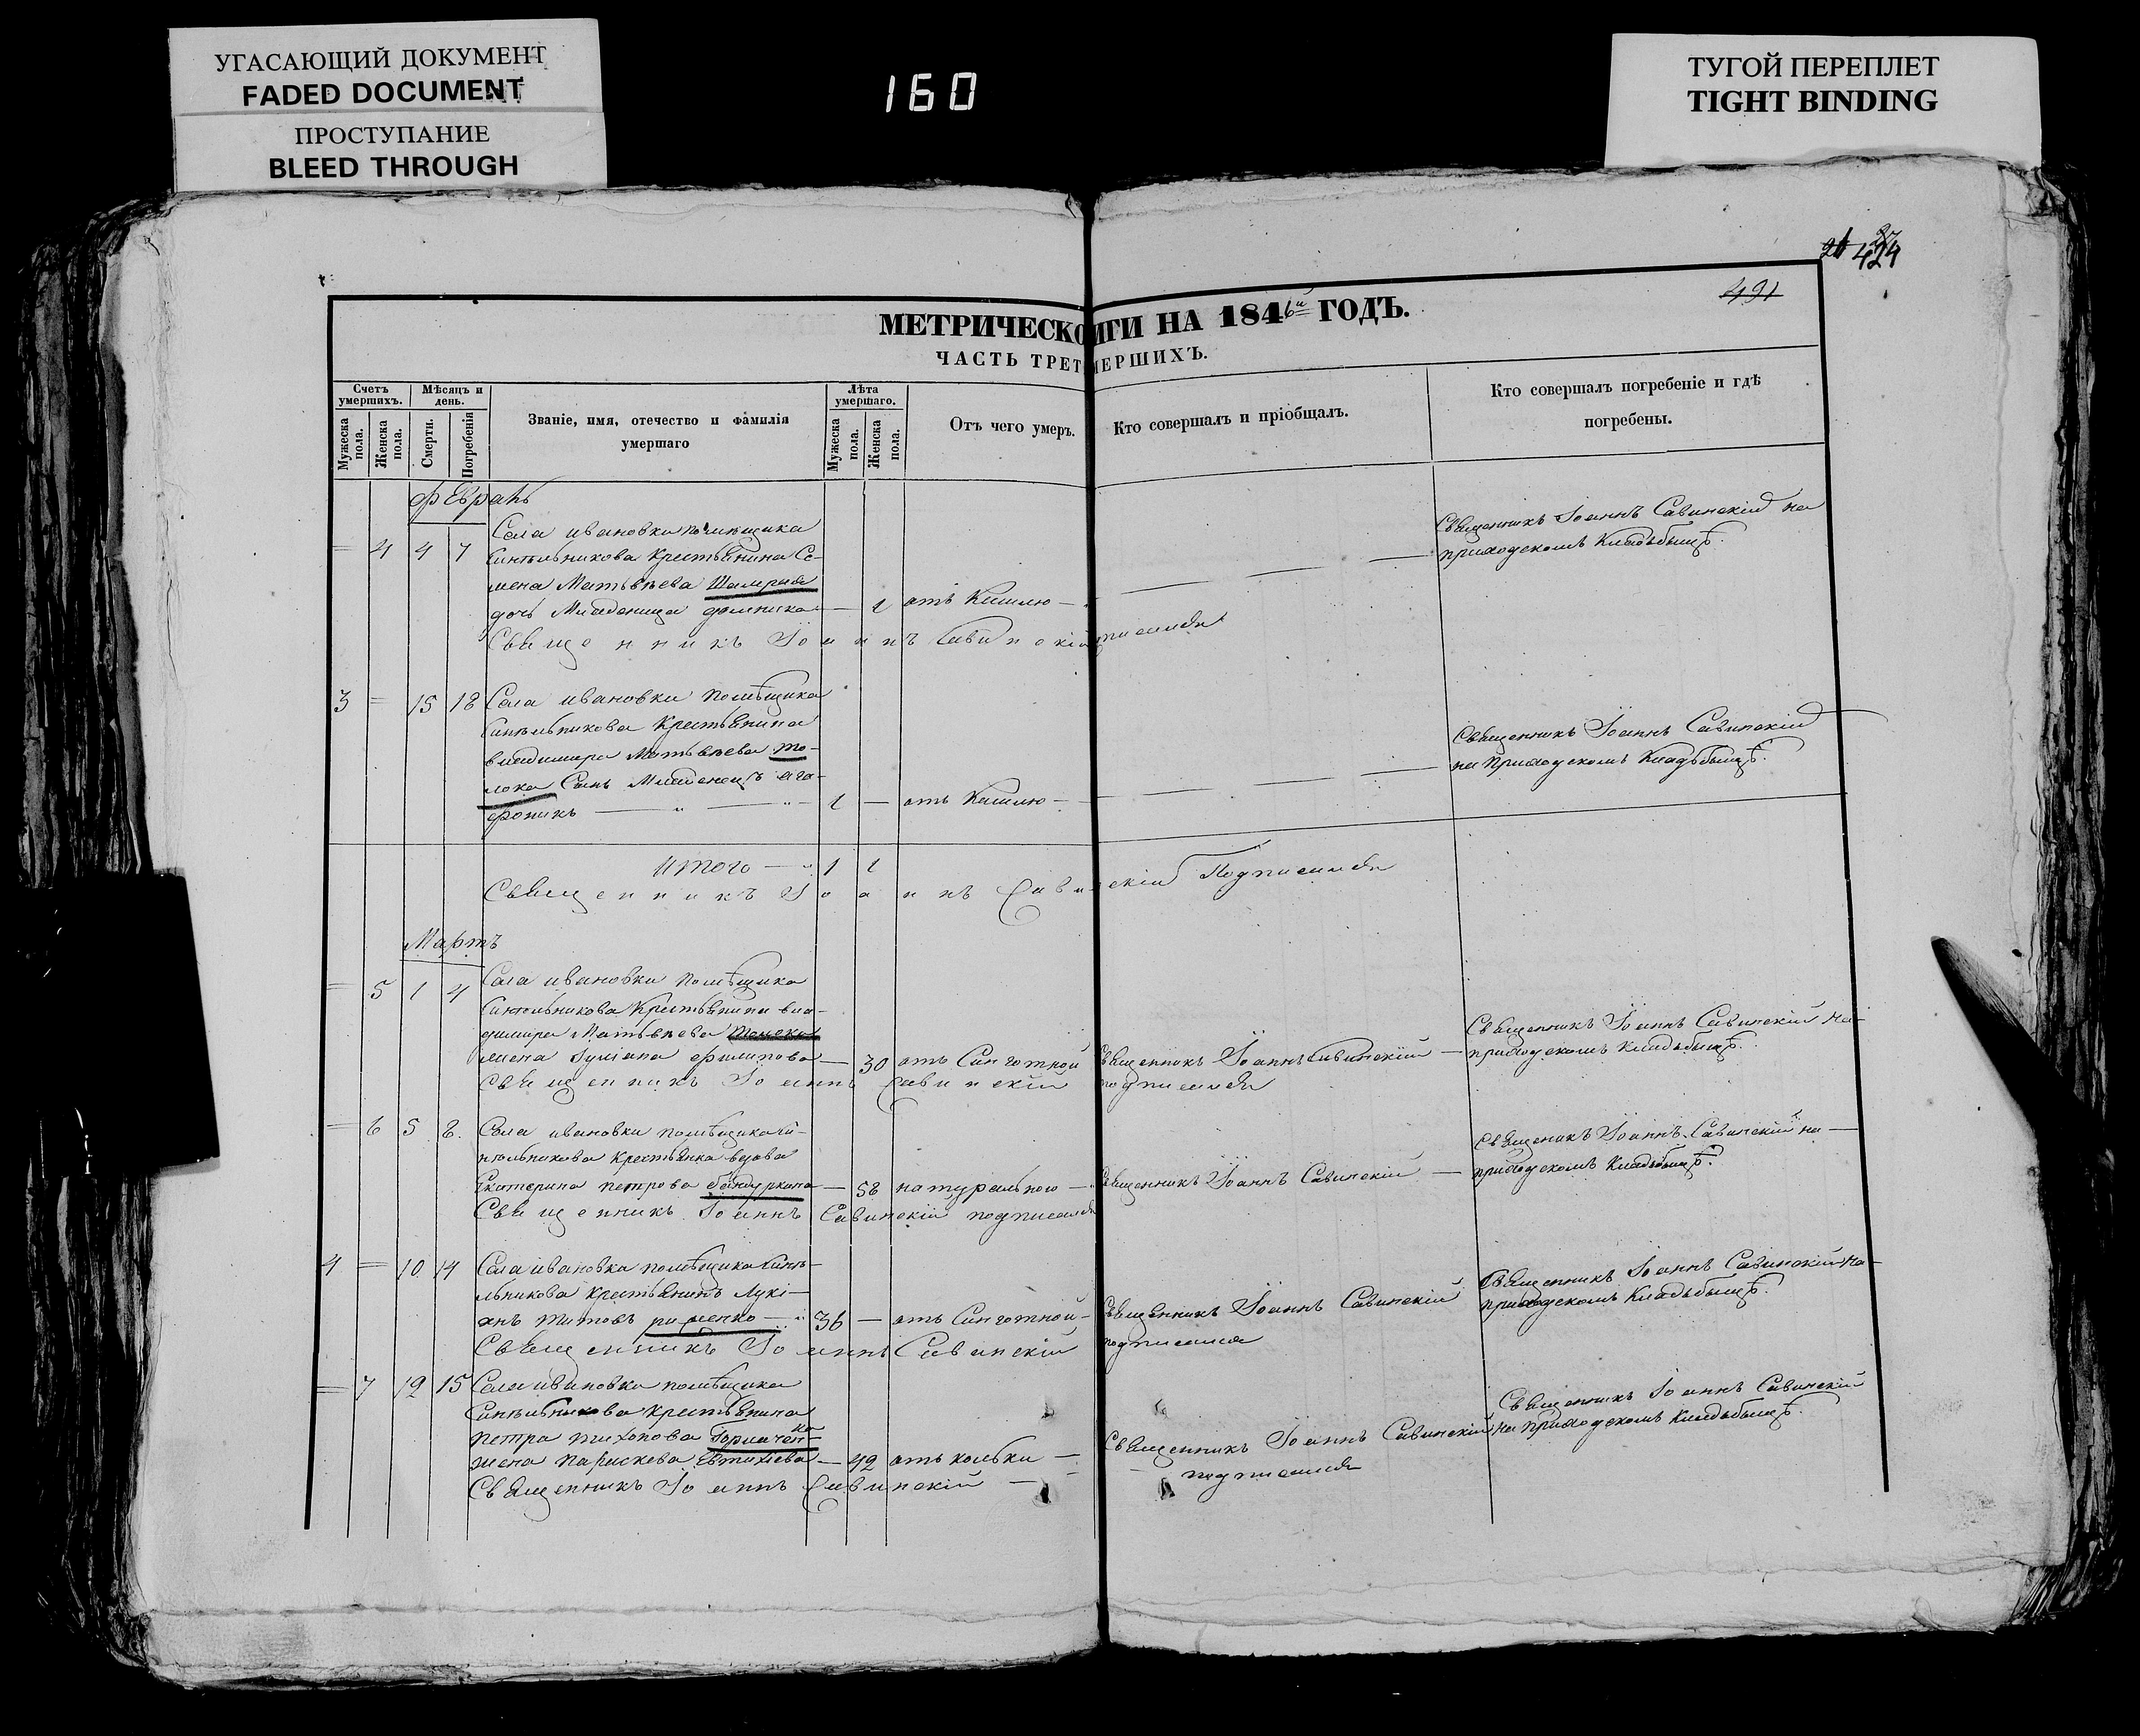 УГАСАЮЩИЙ ДОКУМЕНТ
FADED DOCUMENT
ПРОСТУПАНИЕ
BLEED THROUGH
160
ТУГОЙ ПЕРЕПЛЕТ
TIGHT BINDING
424
491
МЕТРИЧЕСКО ИГИ НА 1846й ГОДЪ.
ЧАСТЬ ТРЕТ МЕРШИХЪ.
Счетъ умершихъ.
Мужеска пола.
Женска пола.
Мѣсяцъ и день.
Смерти.
Погребенія
Званіе, имя, отечество и фамилія
умершаго
Лѣта умершаго.
Мужеска пола.
Женска пола.
Отъ чего умеръ.
Кто совершалъ и пріобщалъ.
Кто совершалъ погребеніе и гдѣ
погребены.
Февраль
= 4 4 7 Села ивановки помѣщика
Синѣльникова Крестьянина Се-
мена Матьвѣева
дочь Младеница — 1 отъ Кашлю —
Священникъ Іоаннъ Савинскій на
приходскомъ Кладьбыщѣ.
Священникъ Іоаннъ Савинскій подписался
3 = 15 18 Села ивановки помѣщика
Синѣльникова Крестьянина
владимира Матьвѣева то-
лока Сынъ Младенецъ ага-
фоникъ — 1 — отъ Кашлю —
Священникъ Іоаннъ Савинскій
на Приходскомъ Кладьбыщѣ.
Итого — 1 1
Священникъ Іоаннъ Савинскій Подписался
Мартъ
= 5 1 4 Села ивановки помѣщика
Синѣльникова Крестьянина вла-
димира Матьвѣева
жена Іуліана филипова — 30 отъ Сухотной Священникъ Іоаннъ Савинскій —
Священникъ Іоаннъ Савинскій на
приходскомъ Кладьбыщѣ.
Священникъ Іоаннъ Савинскій подписался
= 6 5 8. Села ивановки помѣщика Си-
нѣльникова Крестьянка вдова
Екатерина петрова — 58 натурально — Священникъ Іоаннъ Савинскій —
Священикъ Іоаннъ Савинскій на —
приходскомъ Кладьбыщѣ.
Священникъ Іоаннъ Савинскій подписался
4 = 10 14 Села ивановка помѣщика Синѣ-
льникова Крестьянинъ Лукі-
анъ титовъ — 36 — отъ Сухотной — Священникъ Іоаннъ Савинскій
Священникъ Іоаннъ Савинскій на
приходскомъ Кладьбыщѣ.
Священникъ Іоаннъ Савинскій подписался
= 7 12 15 Села ивановка помѣщика
Синѣльникова Крестьянина
петра тихонова Горпиченка
жена параскева Евтихіева — 42 отъ колбки — Священникъ Іоаннъ Савинскій
Священникъ Іоаннъ Савинскій
на приходскомъ Кладьбыщѣ.
Священникъ Іоаннъ Савинскій — подписался